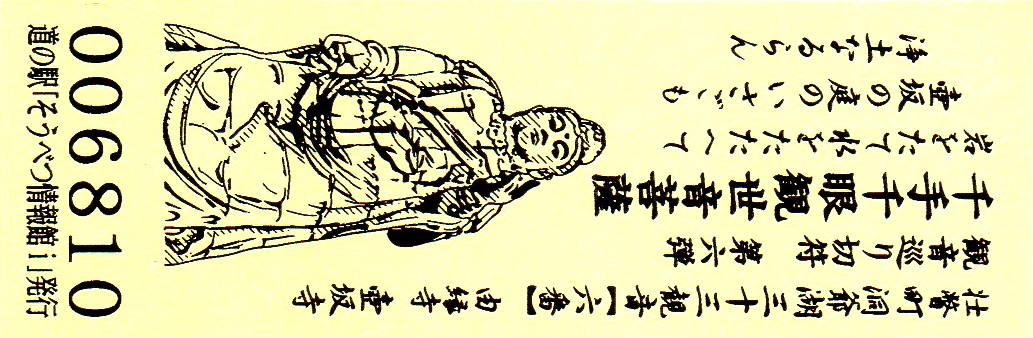 壮瞥町 洞爺湖三十三観音【六番】 由縁寺 壷坂寺
観音巡り切符 第六弾
千手千眼観世音菩薩
岩をたて水をたたへて
壷坂の庭のいさごも
浄土なるらん
006810
道の駅「そうべつ情報館i」発行